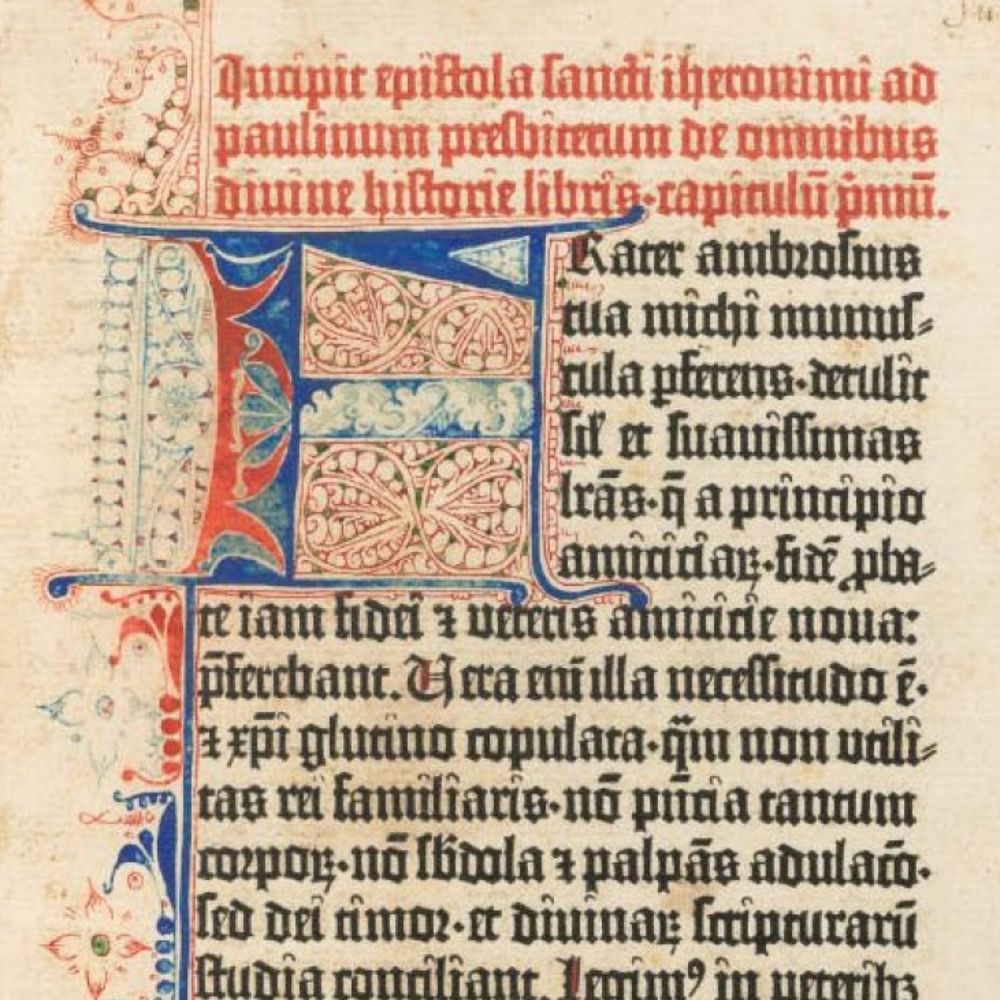 Incipit epistola sancti iheronimi ad
paulinum presbiterum de omnibus
divine historie libris·capitulū p̄mū.
FRater ambrosius
tua michi munus-
cula ꝑferens·detulit
sil̕ et suavissimas
lrās·q̄ a principio
amiciciaꝝ·fidē ꝓba-
te iam fidei ⁊ veteris amicicie nova:
p̄ferebant. Vera enī illa necessitudo ē·
⁊ xp̄i glutino copulata·q̄m non utili-
tas rei familiaris·nō pn̄cia tantum
corpoꝝ·nō sb̄dola ⁊ palpās adulacō·
sed dei timor·et divinaꝝ scripturarū
studia conciliant. Legimꝰ in veteribꝫ